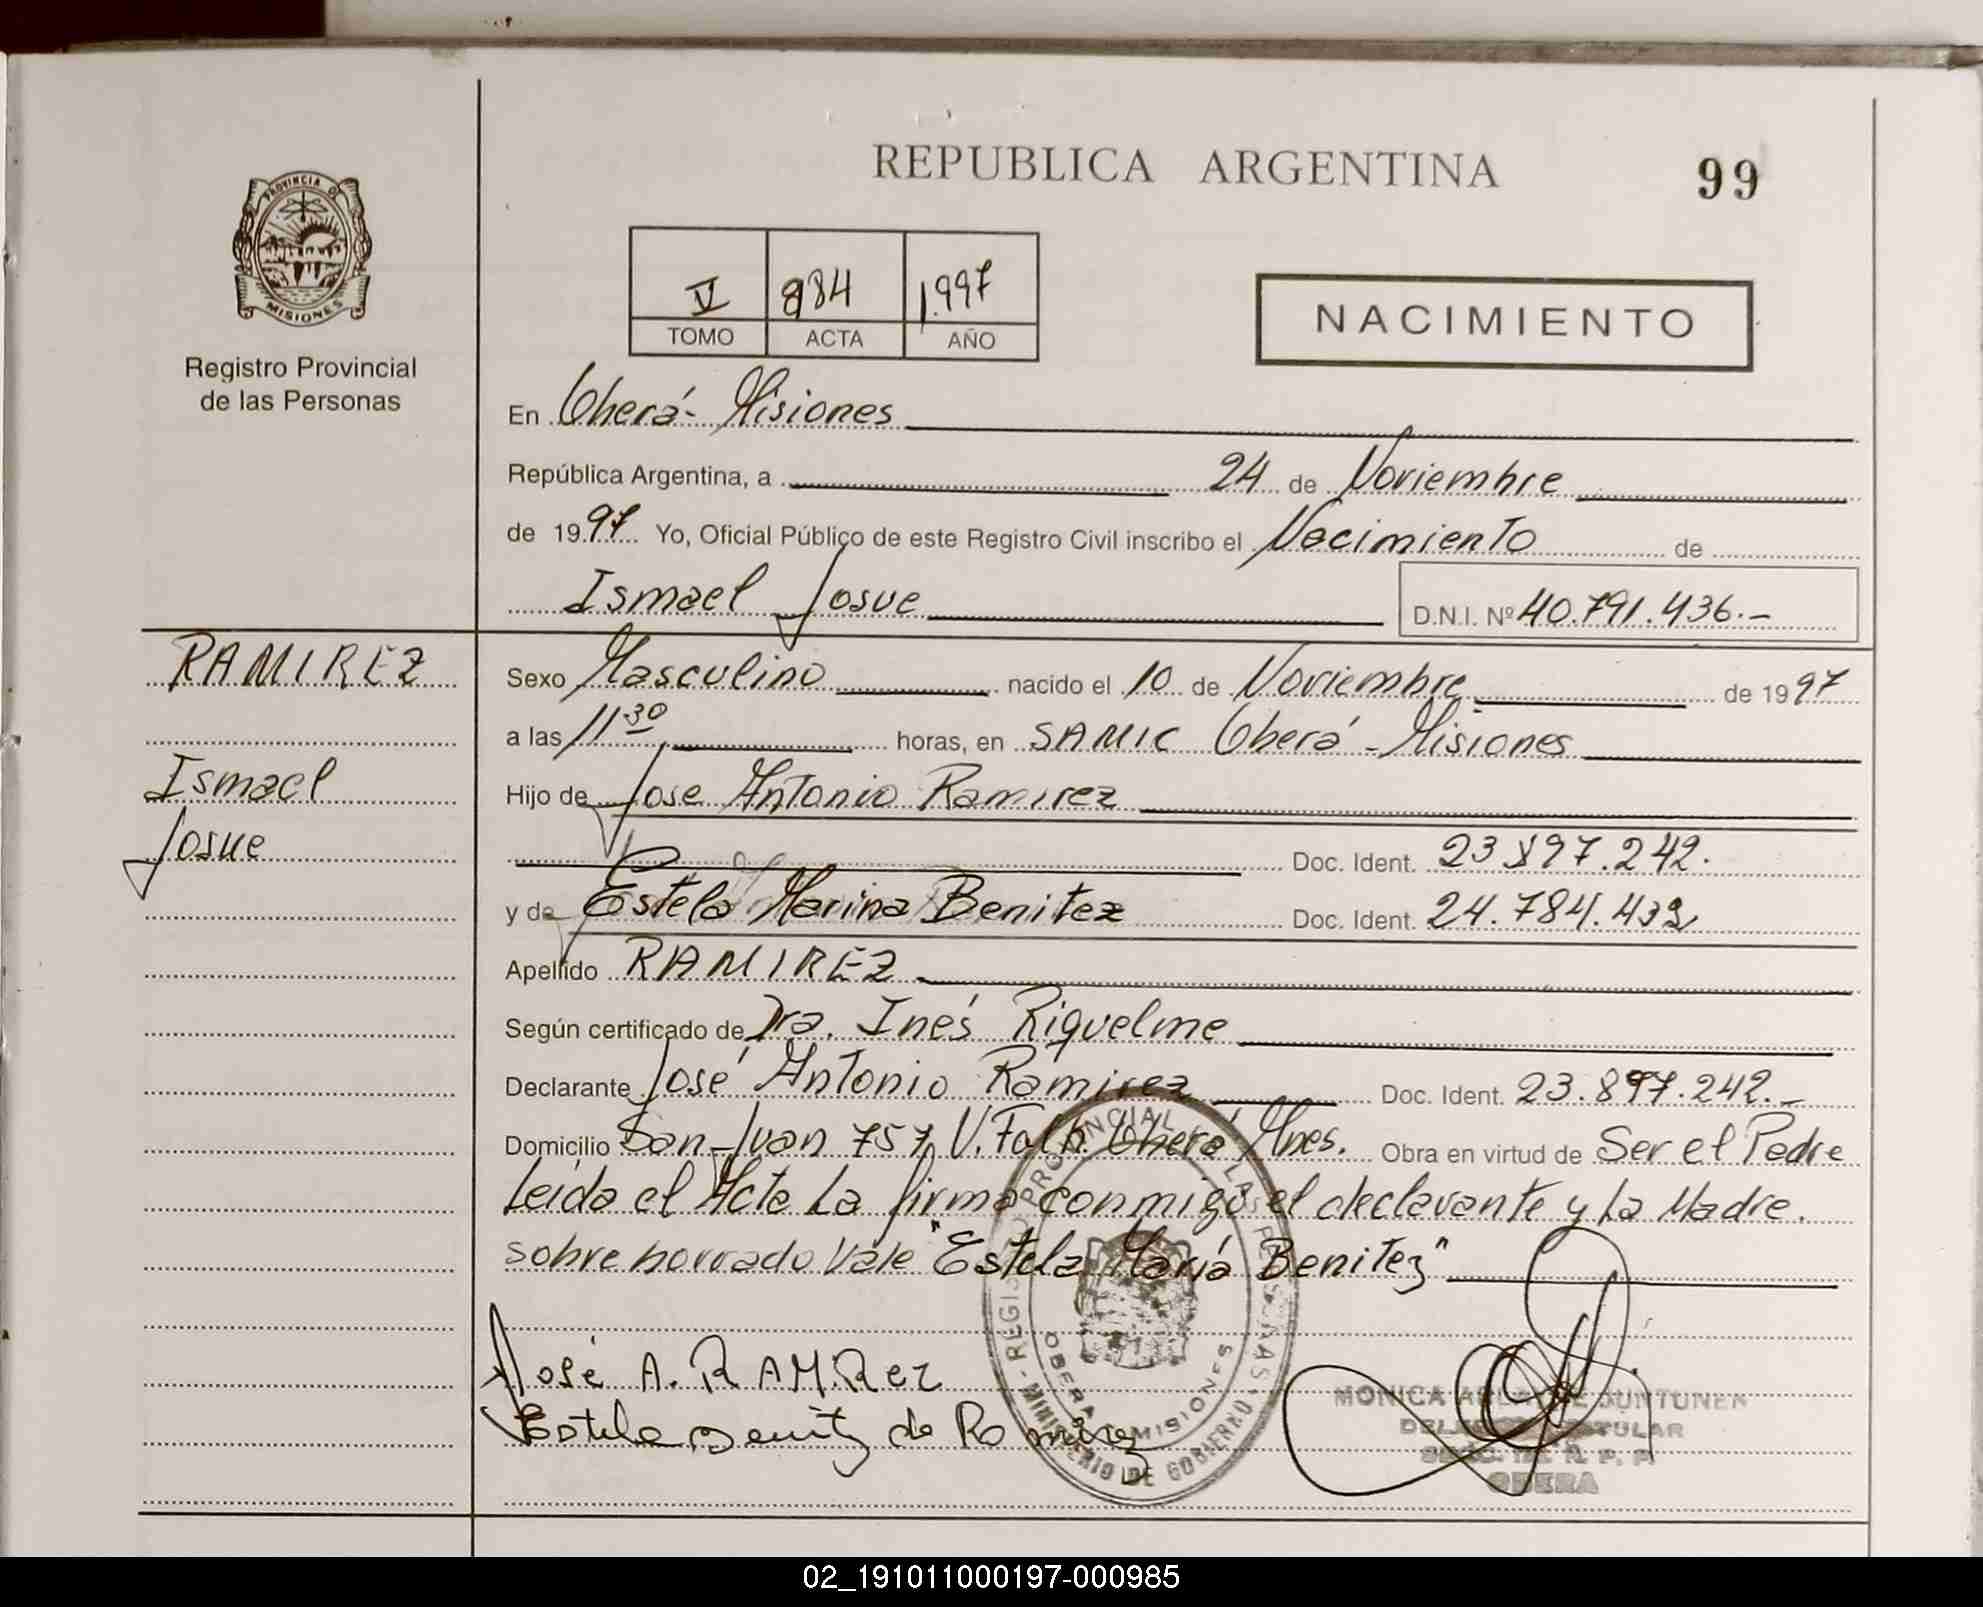 REPUBLICA ARGENTINA
99
PROVINCIA DE
MISIONES
Registro Provincial
de las Personas
V 984 1.997
TOMO ACTA AÑO
NACIMIENTO
En Oberá - Misiones
República Argentina, a 24 de Noviembre
de 1997 Yo, Oficial Público de este Registro Civil inscribo el Nacimiento de
Ismael Josue D.N.I. Nº 40.791.436.-
RAMIREZ
Ismael
Josue
Sexo Masculino nacido el 10 de Noviembre de 1997
a las 11:30 horas, en SAMIC Oberá - Misiones
Hijo de Jose Antonio Ramirez
Doc. Ident. 23.897.242.
y de Estela Marina Benitez Doc. Ident. 24.784.432
Apellido RAMIREZ
Según certificado de Dra. Inés Riquelme
Declarante José Antonio Ramirez Doc. Ident. 23.897.242.-
Domicilio San Juan 757 V. Falk. Oberá Mnes. Obra en virtud de Ser el Padre
Leida el Acta La firma conmigo el declarante y La Madre.
sobre borrado Vale "Estela María Benitez"
José A. RAMIRez
Estela Benitez de Ramirez
REGISTRO PROVINCIAL DE LAS PERSONAS
MINISTERIO DE GOBIERNO
OBERA MISIONES
MONICA JUNTUNEN
TITULAR
OBERA
02_191011000197-000985